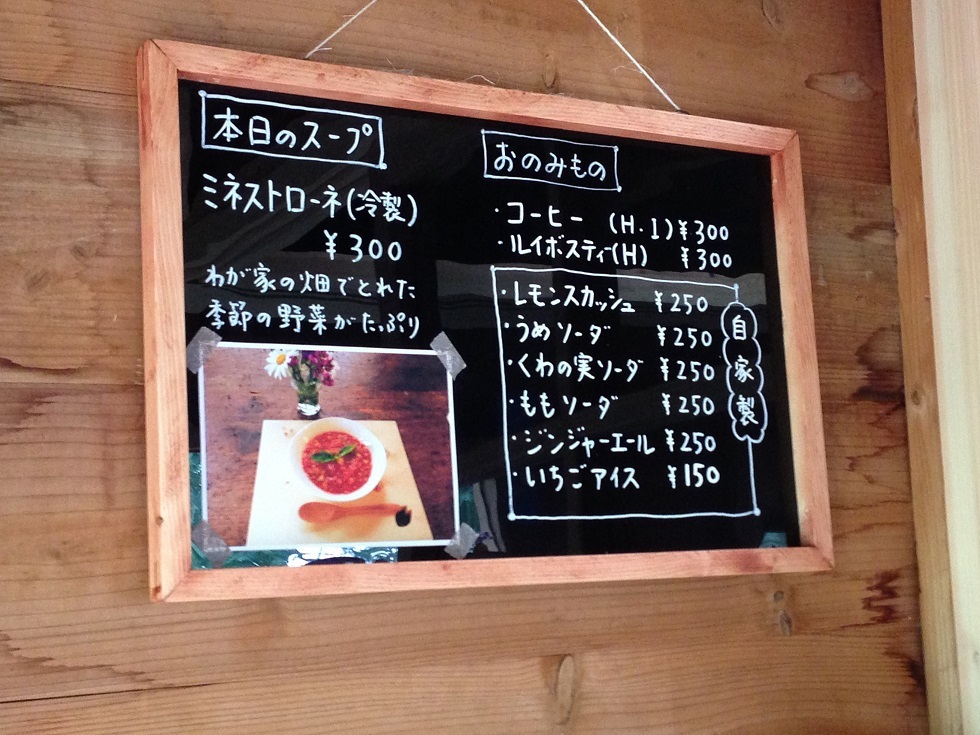 本日のスープ
ミネストローネ(冷製)
¥300
わが家の畑でとれた
季節の野菜がたっぷり
おのみもの
・コーヒー (H.I) ¥300
・ルイボスティー(H) ¥300
・レモンスカッシュ ¥250
・うめソーダ ¥250
・くわの実ソーダ ¥250
・ももソーダ ¥250
・ジンジャーエール ¥250
・いちごアイス ¥150
自家製